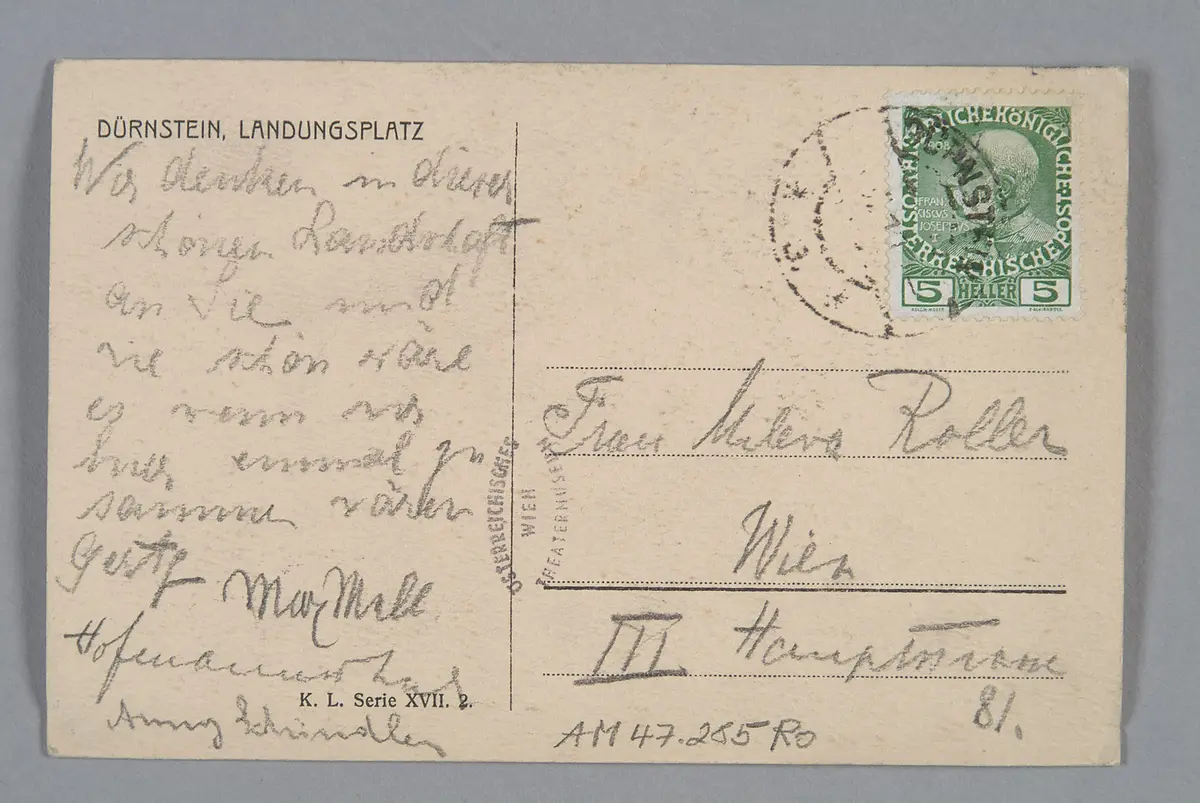 DÜRNSTEIN, LANDUNGSPLATZ
Wir denken in dieser
schönen Landschaft
an Sie und
wie schön wäre
es wenn wir
hier einmal zu
sammen wären
Gerty
Max Mell
Hofmannsthal
K. L. Serie XVII. 2.
Anna Schindler
ÖSTERREICHISCHES
WIEN
THEATERMUSEUM
KAISERLICHE KÖNIGLICHE ÖSTERREICHISCHE POST
FRAN
CISCVS
JOSEPHVS
5 HELLER 5
Frau Mileva Roller
Wien
III Hauptstrasse
81.
AM 47.285 Ro